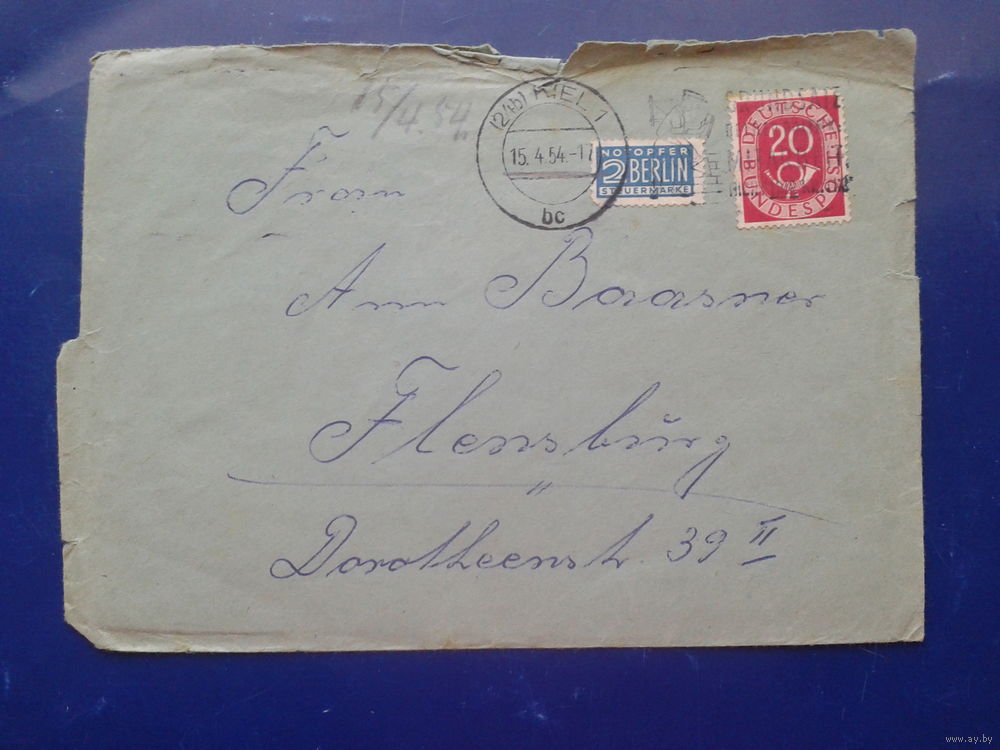 15/4.54
(24b) KIEL 1
15. 4. 54.-17
bc
NOTOPFER
2 BERLIN
STEUERMARKE
DEUTSCHE
BUNDESPOST
20
Frau
Ann Baasner
Flensburg
Dorotheenstr. 39 II
www.ay.by